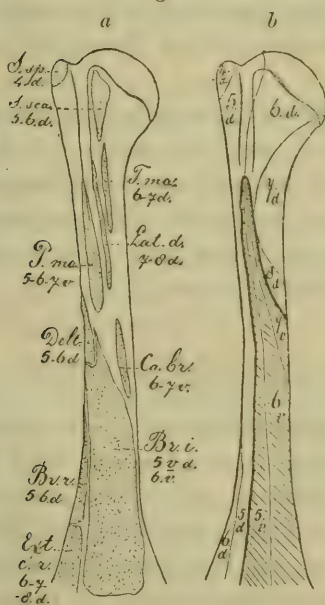 a
b
S. sp.
4.5.d.
S. sca.
5.6.d.
T. ma.
6-7d.
Lat. d.
7-8 d.
P. ma.
5-6-7v
Delt.
5.6d
Co. br.
6-7v.
Br. i.
5 v d.
6. v.
Br. r.
5 6.d
Ext.
c. r.
6-7
-8. d.
5.
d
6. d.
7.
d
8.
d
v
6
v
5.
v
5
d
6
d